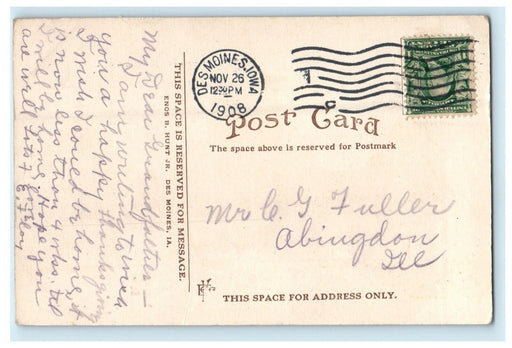 My Dear Grandfather —
I am writing to wish
you a happy thanksgiving
I wish I could be home, it
is now less than 4 wks. till
I will be home. Hope you
are well. Lots of
THIS SPACE IS RESERVED FOR MESSAGE.
ENOS B. HUNT JR. DES MOINES, IA.
DES MOINES, IOWA
NOV 26
12 30 PM
1908
Post Card
The space above is reserved for Postmark
Mr C. G. Fuller
Abingdon
Ill
THIS SPACE FOR ADDRESS ONLY.